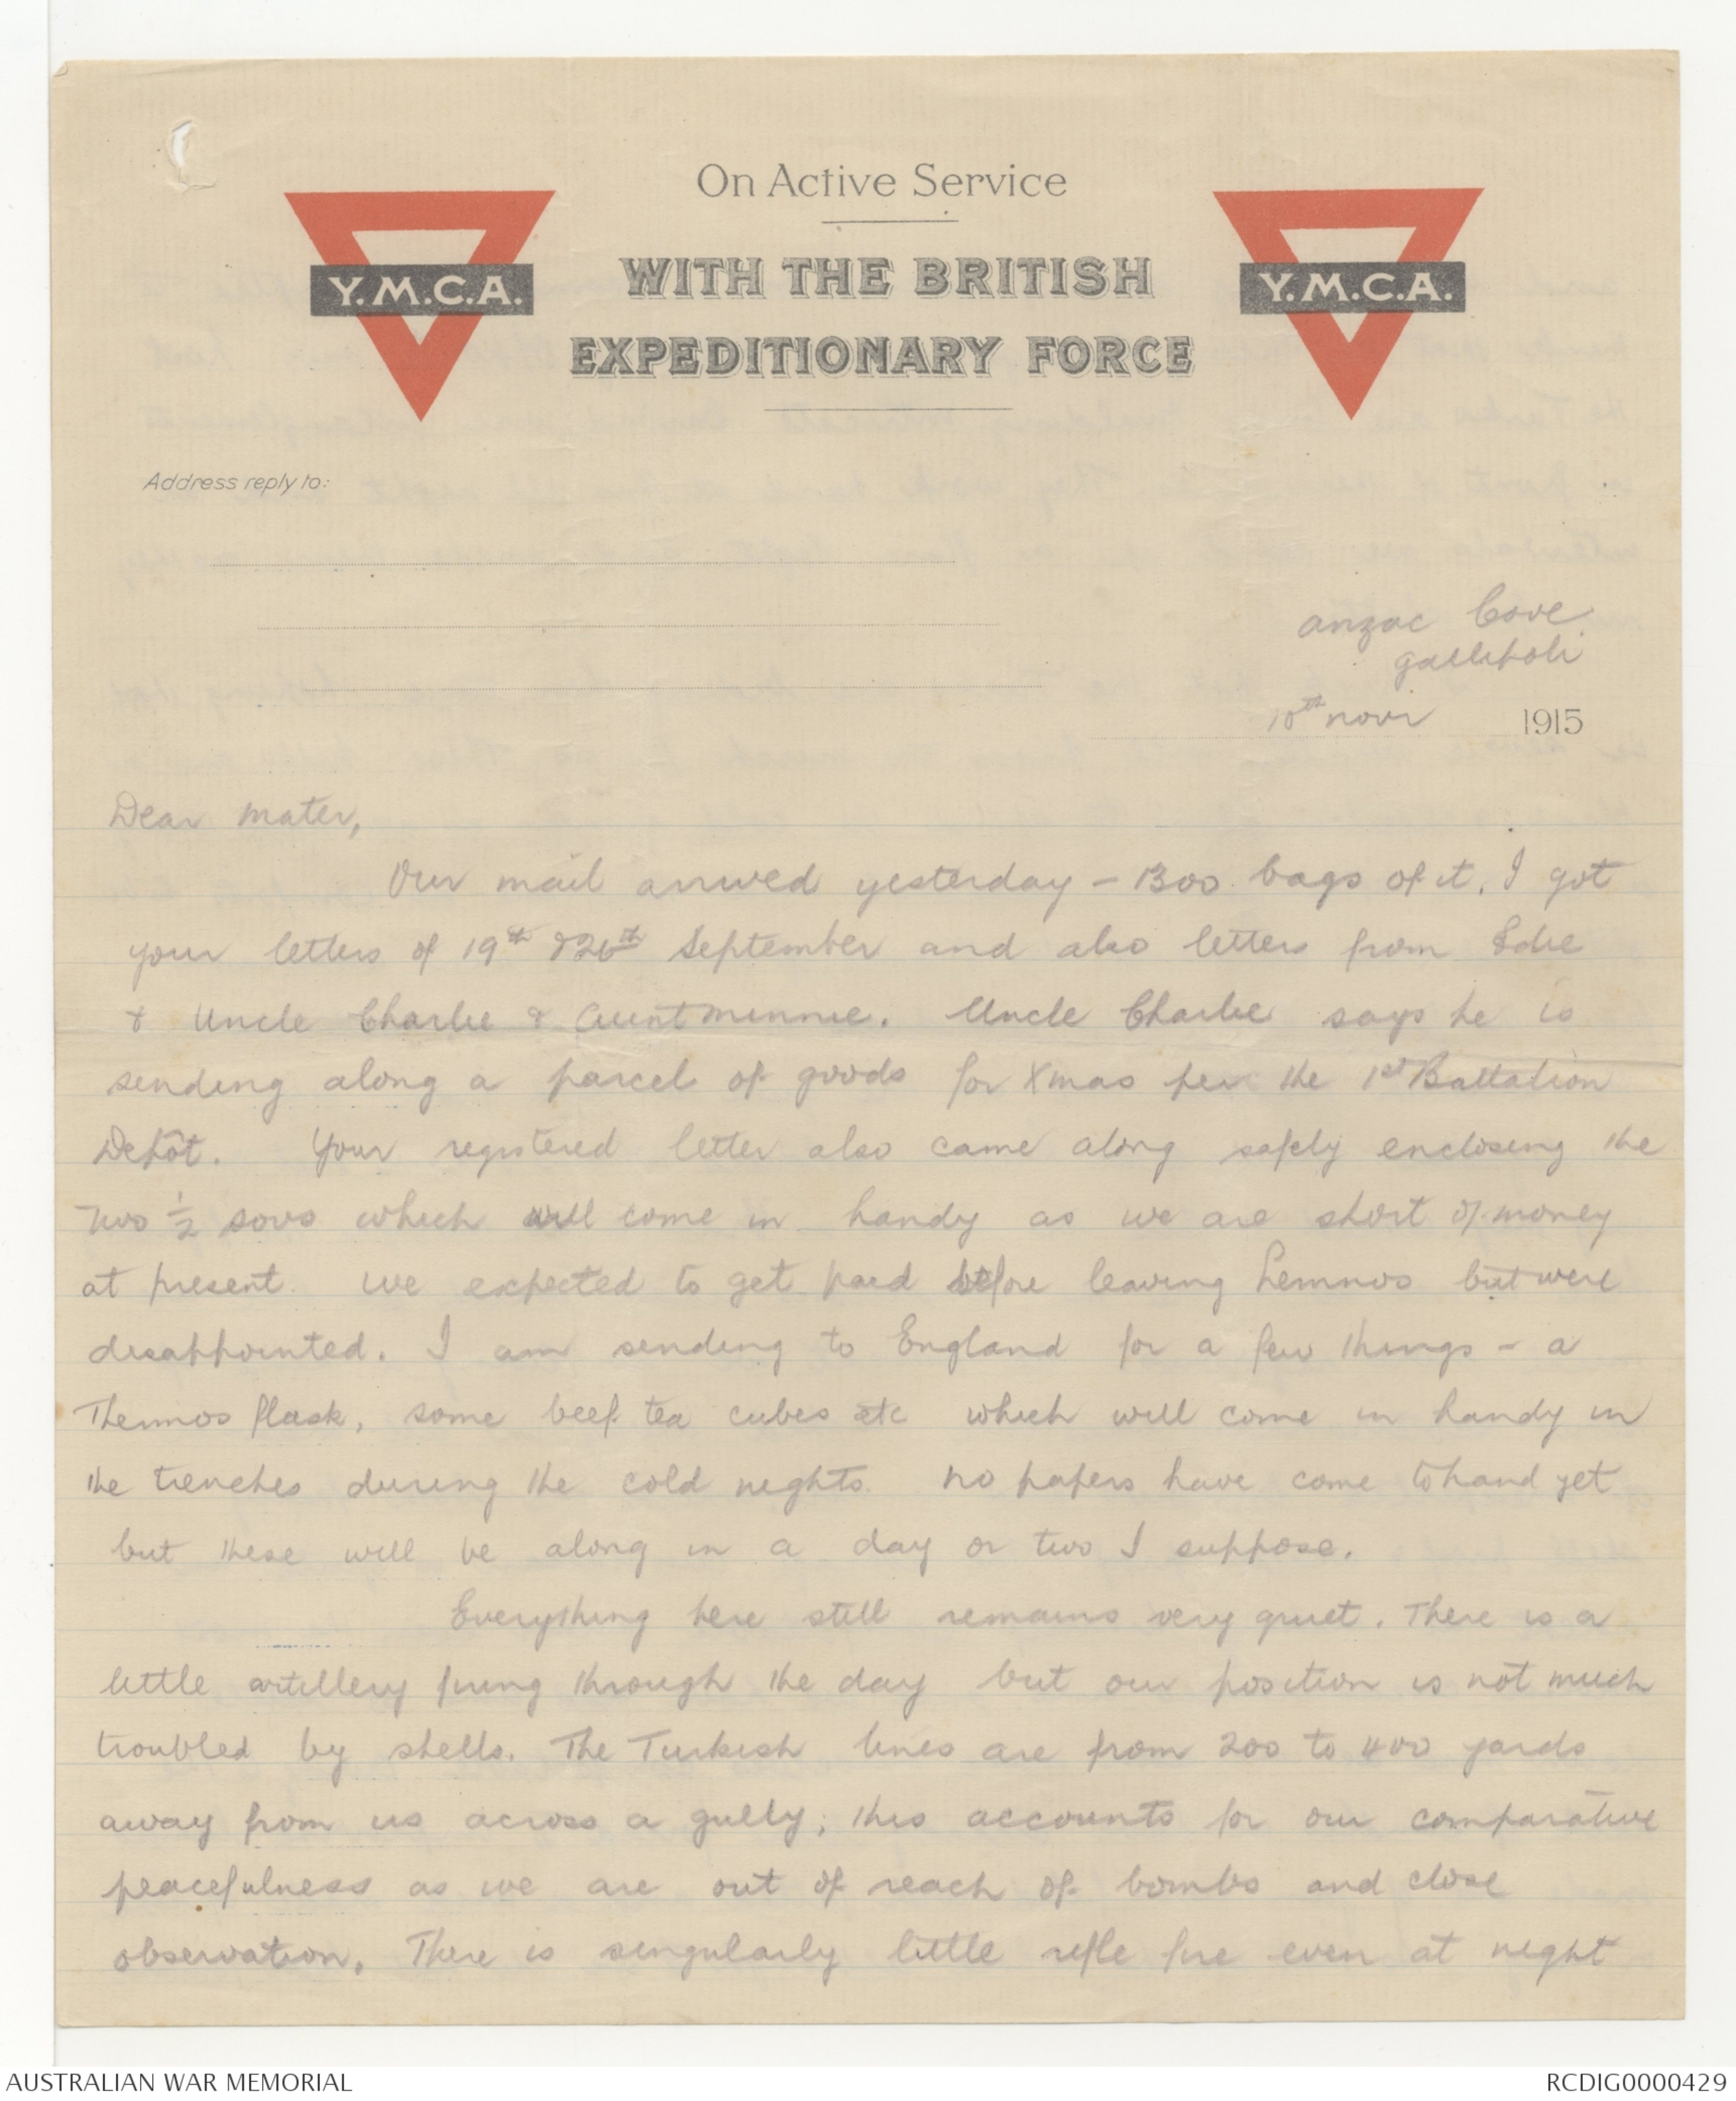 On Active Service
Y.M.C.A.
WITH THE BRITISH
EXPEDITIONARY FORCE
Y.M.C.A.
Address reply to:
Anzac Cove
Gallipoli
10th Novr 1915
Dear Mater,
Our mail arrived yesterday - 1300 bags of it. I got
your letters of 19th & 26th September and also letters from Edie
& Uncle Charlie & Aunt Minnie. Uncle Charlie says he is
sending along a parcel of goods for Xmas per the 1st Battalion
Depôt. Your registered letter also came along safely enclosing the
two ½ sovs which will come in handy as we are short of money
at present. We expected to get paid before leaving Lemnos but were
disappointed. I am sending to England for a few things - a
Thermos flask, some beef tea cubes etc which will come in handy in
the trenches during the cold nights. No papers have come to hand yet
but these will be along in a day or two I suppose.
Everything here still remains very quiet. There is a
little artillery firing through the day but our position is not much
troubled by shells. The Turkish lines are from 200 to 400 yards
away from us across a gully; this accounts for our comparative
peacefulness as we are out of reach of bombs and close
observation. There is singularly little rifle fire even at night
AUSTRALIAN WAR MEMORIAL
RCDIG0000429